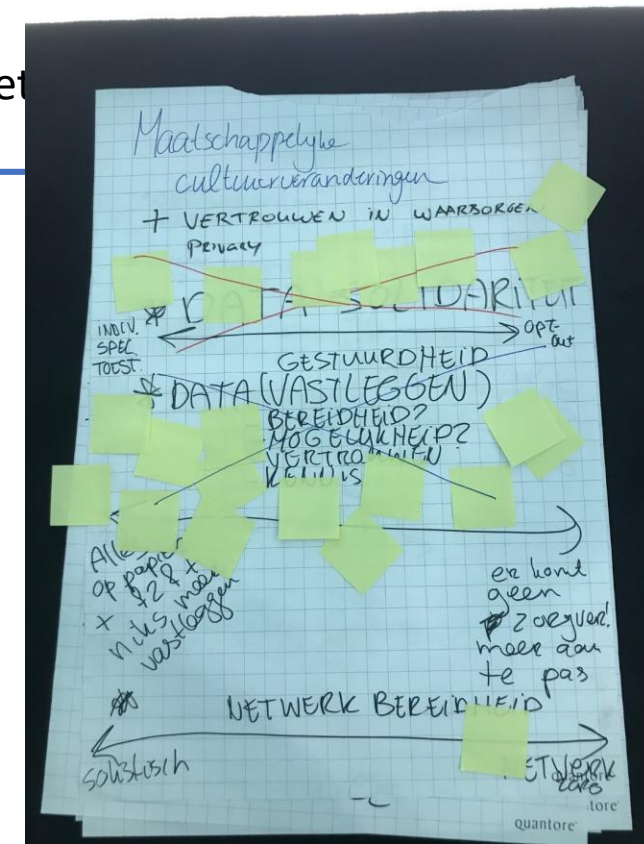 et
Maatschappelijke
cultuurveranderingen
+ VERTROUWEN IN WAARBORGEN
PRIVACY
* DATA SOLIDARITEIT
INDIV.
SPEC
TOEST.
OPT-
OUT
GESTUURDHEID
* DATA (VASTLEGGEN)
BEREIDHEID?
MOGELIJKHEID?
VERTROUWEN
KENNIS
Alles
op papier
niks meer
vastleggen
er komt
geen
zorgver.
meer aan
te pas
NETWERK BEREIDHEID
solistisch
NETWERK
zorg
quantore
tore
quantore